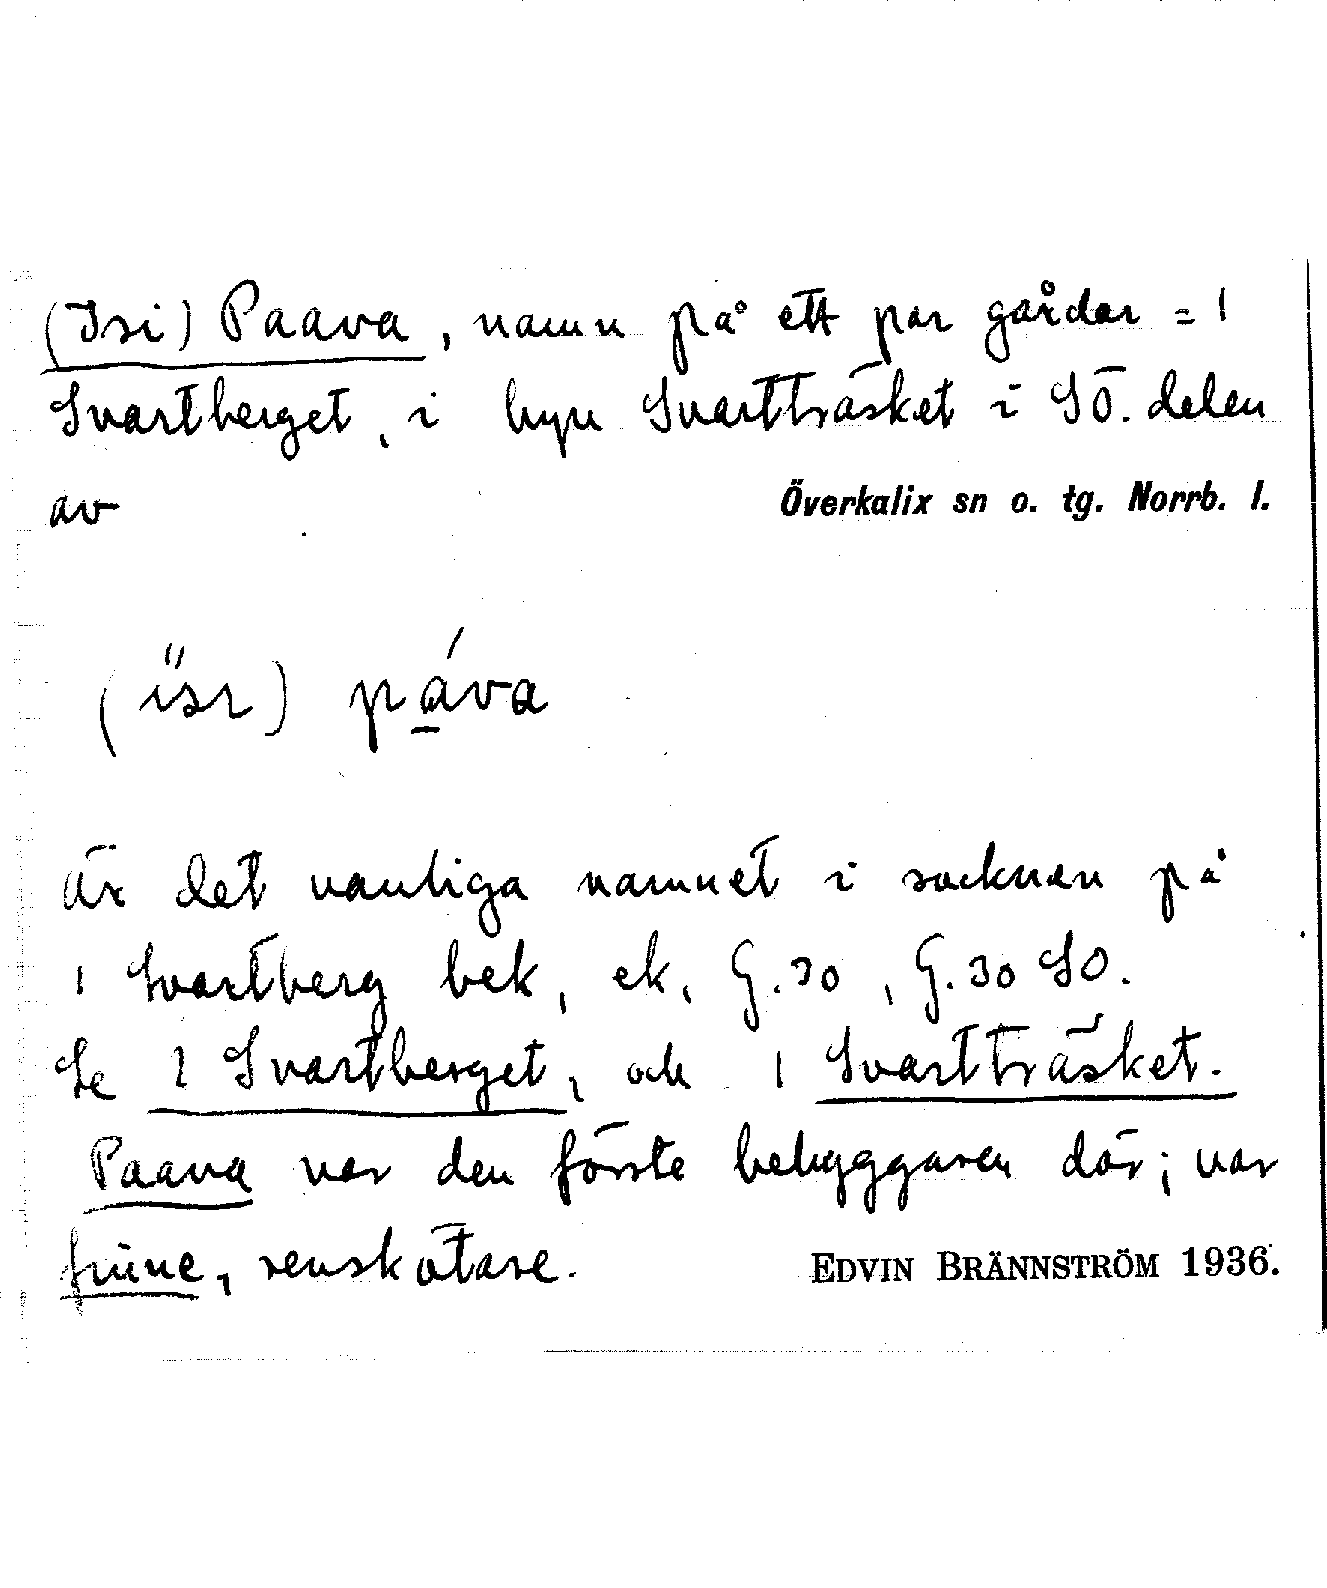 (Isi) Paava, namn på ett par gårdar = 1
Svartberget, i byn Svartträsket i SÖ. delen
av Överkalix sn o. tg. Norrb. l.
(ı̋sı) páva
Är det vanliga namnet i socknen på
1 Svartberg bek, ek, G.30, G.30 SO.
Se 1 Svartberget, och 1 Svartträsket.
Paava var den förste bebyggaren där; var
finne, renskötare. EDVIN BRÄNNSTRÖM 1936.